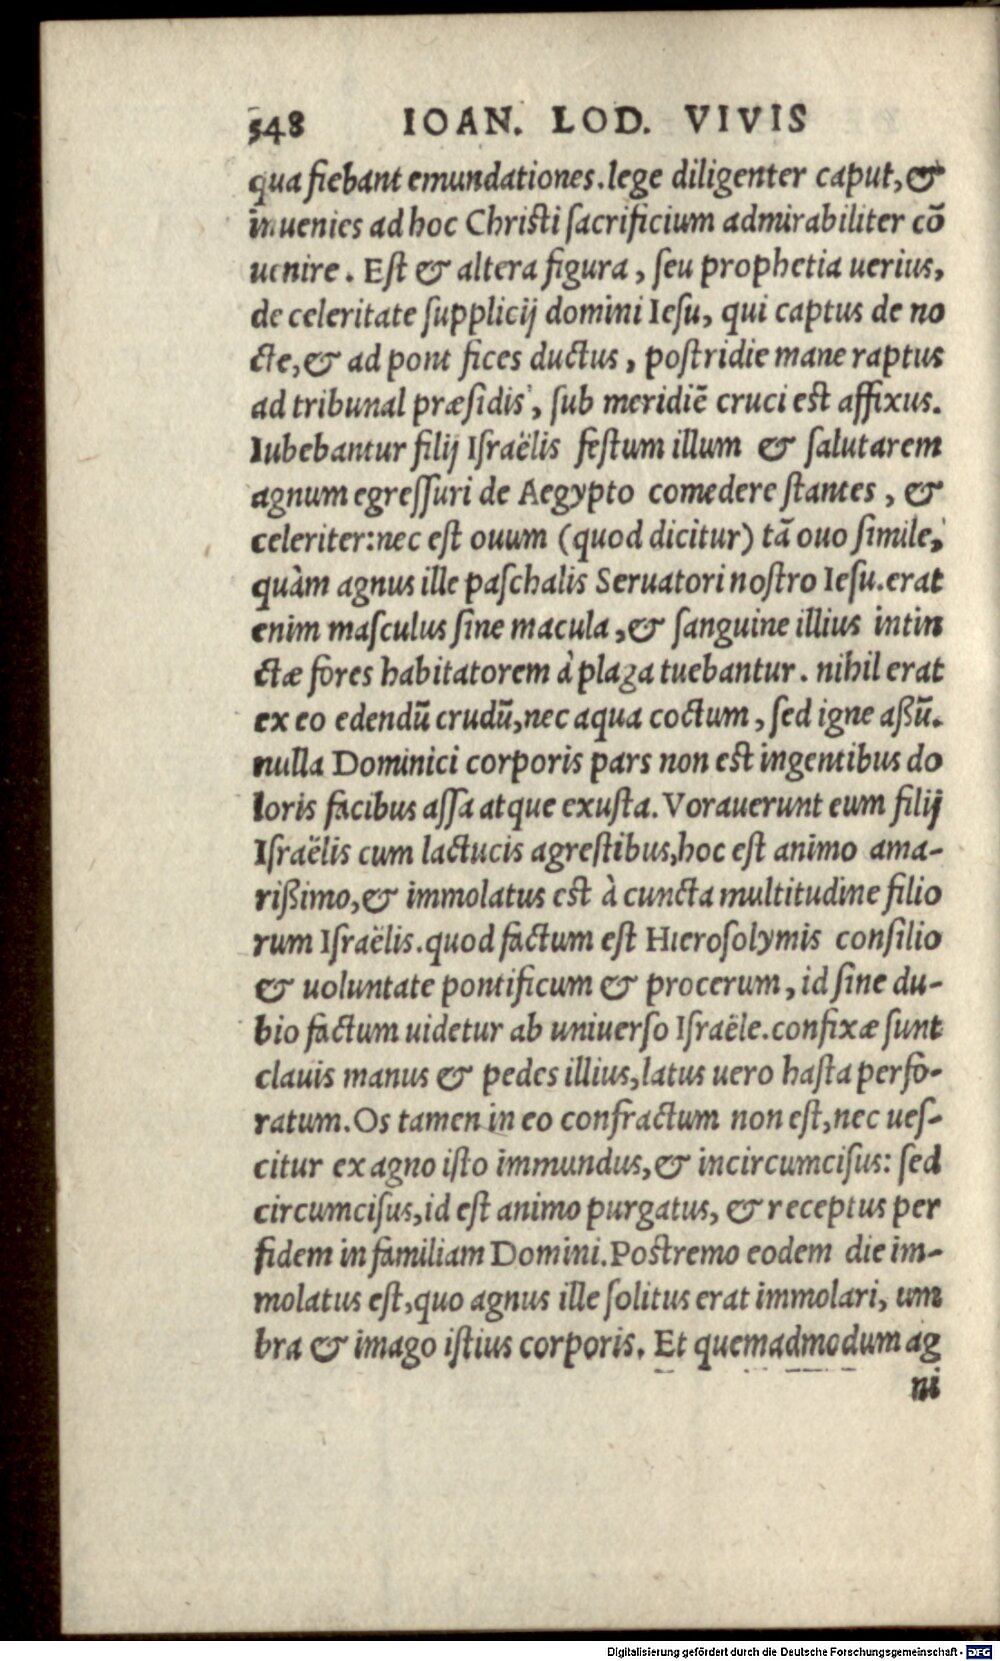 548 IOAN. LOD. VIVIS
qua fiebant emundationes. lege diligenter caput, &
inuenies ad hoc Christi sacrificium admirabiliter cō
uenire. Est & altera figura, seu prophetia uerius,
de celeritate supplicij domini Iesu, qui captus de no
cte, & ad pont fices ductus, postridie mane raptus
ad tribunal præsidis, sub meridiē cruci est affixus.
Iubebantur filij Israëlis festum illum & salutarem
agnum egressuri de Aegypto comedere stantes, &
celeriter: nec est ouum (quod dicitur) tā ouo simile,
quàm agnus ille paschalis Seruatori nostro Iesu. erat
enim masculus sine macula, & sanguine illius intin
ctæ fores habitatorem à plaga tuebantur. nihil erat
ex eo edendū crudū, nec aqua coctum, sed igne aßū.
nulla Dominici corporis pars non est ingentibus do
loris facibus assa atque exusta. Vorauerunt eum filij
Israëlis cum lactucis agrestibus, hoc est animo ama-
rißimo, & immolatus est à cuncta multitudine filio
rum Israëlis. quod factum est Hierosolymis consilio
& uoluntate pontificum & procerum, id sine du-
bio factum uidetur ab uniuerso Israële. confixæ sunt
clauis manus & pedes illius, latus uero hasta perfo-
ratum. Os tamen in eo confractum non est, nec ues-
citur ex agno isto immundus, & incircumcisus: sed
circumcisus, id est animo purgatus, & receptus per
fidem in familiam Domini. Postremo eodem die im-
molatus est, quo agnus ille solitus erat immolari, um
bra & imago istius corporis. Et quemadmodum ag
ni
Digitalisierung gefördert durch die Deutsche Forschungsgemeinschaft - DFG